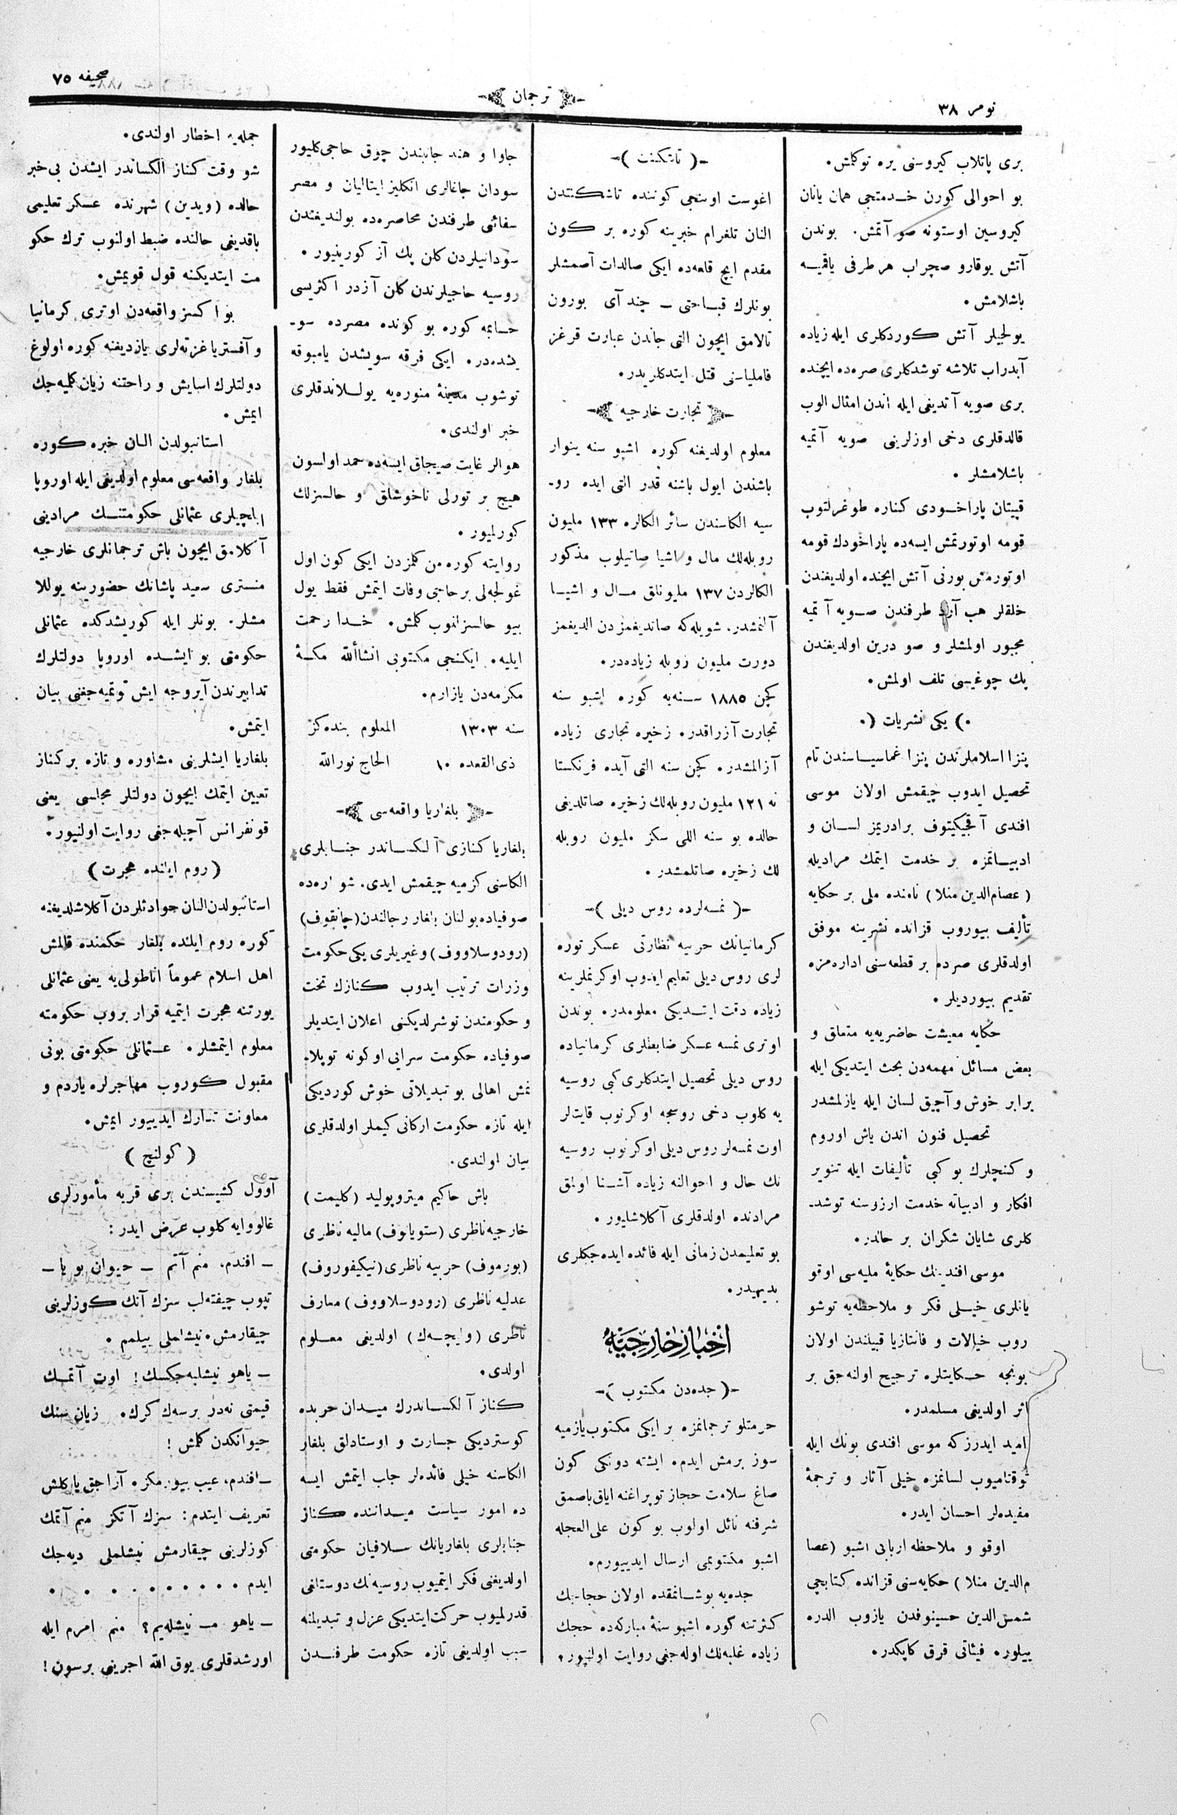 نومر ۳۸
ترجمان
صحیفه ۷۵
بری پاتلاب کیروسنی یره توکلمش.
بو احوالی کورن خدمتجی همان یانان
کیروسین اوستونه صو آتمش. بوندن
آتش یوقارو صچراب هر طرفی یاقمیه
باشلامش.
یولجیلر آتش کوردکلری ایله زیاده
آبدراب تلاشه توشدکلری صره‌ده ایچنده
بری صویه آتدیغی ایله اندن امثال الوب
قالدقلری دخی اوزلرینی صویه آتمیه
باشلامشلر.
قپیتان پاراخودی کناره طوغرلتوب
قومه اوتورتمش ایسه‌ده پاراخودك قومه
اوتورمش بورنی آتش ایچنده اولدیغندن
خلقلر هب آرد طرفندن صویه آتمیه
مجبور اولمشلر و صو درین اولدیغندن
پك چوغیسی تلف اولمش.
.) یکی نشریات (.
پنزا اسلاملرندن پنزا غماسیاسندن تام
تحصیل ایدوب چیقمش اولان موسی
افندی آقچیکتوف برادریمز لسان و
ادبیاتمزه بر خدمت ایتمك مرادیله
( عصام‌الدین منلا ) نامنده ملی بر حکایه
تألیف بیوروب قزانده نشرینه موفق
اولدقلری صره‌ده بر قطعه‌سنی اداره‌مزه
تقدیم بیوردیلر.
حکایه معیشت حاضریه‌یه متعلق و
بعض مسائل مهمه‌دن بحث ایتدیکی ایله
برابر خوش و آچق لسان ایله یازلمشدر
تحصیل فنون اندن یاش اوروم
و کنچلرك بو کبی تألیفات ایله تنویر
افکار و ادبیاته خدمت ارزوسنه توشد-
کلری شایان شکران بر حالدر.
موسی افندینك حکایهٔ ملیه‌سی اوقو
یانلری خیلی فکر و ملاحظه‌یه توشو
روب خیالات و فانتازیا قبیلندن اولان
بونجه حکایتلره ترجیح اوله‌جق بر
اثر اولدیغی مسلمدر.
امید ایدرزکه موسی افندی بونك ایله
توقتامیوب لسانمزه خیلی آثار و ترجمهٔ
مفیده‌لر احسان ایدر.
اوقو و ملاحظه اربابی اشبو (عصا
م‌الدین منلا ) حکایه‌سنی قزانده کتابچی
شمس‌الدین حسینوفدن یازوب الدره
بیلور. فیئاتی قرق کاپکدر.
-( تاشکنت )-
اغوست اوننجی کوننده تاشکنتدن
النان تلغرام خبرینه کوره بر کون
مقدم ایچ قلعه‌ده ایکی صالدات آصمشلر
بونلرك قباحتی — چند آی بورون
تالامق ایچون التی جاندن عبارت قرغز
فامیلیاسنی قتل ایتدکلریدر.
تجارت خارجیه
معلوم اولدیغنه کوره اشبو سنه ینوار
باشندن ایول باشنه قدر التی ایده رو-
سیه الکاسندن سائر الکالره ۱۳۳ ملیون
روبله‌لك مال و اشیا صاتیلوب مذکور
الکالردن ۱۳۷ ملیونلق مال و اشیا
آلنمشدر. شویله‌که صاتدیغمزدن الدیغمز
دورت ملیون روبله زیاده‌در.
کچن ۱۸۸۵ سنه‌یه کوره اشبو سنه
تجارت آزراقدر. زخیره تجاری زیاده
آزالمشدر. کچن سنه التی آیده فرنکستا
نه ۱۲۱ ملیون روبله‌لك زخیره صاتلدیغی
حالده بو سنه اللی سکز ملیون روبله
لك زخیره صاتلمشدر.
-( نمسه‌لرده روس دیلی )-
کرمانیانك حربیه نظارتی عسکر توره
لری روس دیلی تعلیم ایدوب اوکرنملرینه
زیاده دقت ایتدیکی معلومدر. بوندن
اوتری نمسه عسکر ضابطلری کرمانیاده
روس دیلی تحصیل ایتدکلری کبی روسیه
یه کلوب دخی روسجه اوکرنوب قایتلر
اوت نمسه‌لر روس دیلی اوکرنوب روسیه
نك حال و احوالنه زیاده آشنا اولمق
مرادنده اولدقلری آکلاشلیور.
بو تعلیمدن زمانی ایله فائده ایده‌جکلری
بدیهیدر.
اخبار خارجیه
-( جده‌دن مکتوب )-
حرمتلو ترجمانمزه بر ایکی مکتوب یازمیه
سوز برمش ایدم. ایشته دونکی کون
صاغ سلامت حجاز توپراغنه ایاق باصمق
شرفنه نائل اولوب بو کون علی‌العجله
اشبو مکتوبمی ارسال ایدییورم.
جده‌یه بوشانمقده اولان حجاجك
کثرتنه کوره اشبو سنهٔ مبارکه‌ده حجك
زیاده غلبه‌لك اوله‌جغی روایت اولنیور.
جاوا و هند جانبندن چوق حاجی کلیور
سودان جاغالری انکلیز ایتالیان و مصر
سفائنی طرفندن محاصره‌ده بولندیغندن
سودانیلردن کلان پك آز کورینیور.
روسیه حاجیلرندن کلان آزدر اکثریسی
حسابمه کوره بو کونده مصرده سو-
یشده‌در. ایکی فرقه سویشدن یامبوقه
توشوب مدینهٔ منوره‌یه یوللاندقلری
خبر اولندی.
هوالر غایت صیجاق ایسه‌ده حمد اولسون
هیچ بر تورلی ناخوشلق و حالسزلك
کورلمیور.
روایته کوره من کلمزدن ایکی کون اول
غولجه‌لی بر حاجی وفات ایتمش فقط یول
بیو حالسزلنوب کلمش. خدا رحمت
ایلیه. ایکنجی مکتوبی انشاألله مکهٔ
مکرمه‌دن یازارم.
سنه ۱۳۰۳ المعلوم بنده‌کز
ذی‌القعده ۱۰ الحاج نورالله
بلغاریا واقعه‌سی
بلغاریا کنازی آلکساندر جنابلری
الکاسنی کزمیه چیقمش ایدی. شو ارده
صوفیاده بولنان بلغار رجالندن (چانقوف)
(رودوسلاووف) وغیریلری یکی حکومت
وزرات ترتیب ایدوب کنازك تخت
و حکومتدن توشرلدیکنی اعلان ایتدیلر
صوفیاده حکومت سرایی اوکونه توپلا-
نمش اهالی بو تبدیلاتی خوش کوردیکی
ایله تازه حکومت ارکانی کیملر اولدقلری
بیان اولندی.
باش حاکیم میتروپولید (کلیمت)
خارجیه ناظری (ستویانوف) مالیه ناظری
(بورموف) حربیه ناظری (نیکیفوروف)
عدلیه ناظری (رودوسلاووف) معارف
ناظری (وایچه‌ك) اولدیغی معلوم
اولدی.
کناز آلکساندرك میدان حربده
کوستردیکی جسارت و اوستادلق بلغار
الکاسنه خیلی فائده‌لر جاب ایتمش ایسه
ده امور سیاست میداننده کناز
جنابلری بلغاریانك سلافیان حکومتی
اولدیغنی فکر ایتمیوب روسیه‌نك دوستلغی
قدرلمیوب حرکت ایتدیکی عزل و تبدیلنه
سبب اولدیغی تازه حکومت طرفندن
جمله‌یه اخطار اولندی.
شو وقت کناز الکساندر ایشدن بی خبر
حالده (ویدین) شهرنده عسکر تعلیمی
باقدیغی حالنده ضبط اولنوب ترك حکو
مت ایتدیکنه قول قویمش.
بو اکسز واقعه‌دن اوتری کرمانیا
و آفستریا غزته‌لری یازدیغنه کوره اولوغ
دولتلرك اسایش و راحتنه زیان کلمیه‌جك
ایمش.
استانبولدن النان خبره کوره
بلغار واقعه‌سی معلوم اولدیغی ایله اوروپا
ایلچیلری عثمانلی حکومتنك مرادینی
آکلامق ایچون باش ترجمانلری خارجیه
منستری سعید پاشانك حضورینه یوللا
مشلر. بونلر ایله کوریشدکده عثمانلی
حکومتی بو ایشده اوروپا دولتلرك
تدابیرندن آیروجه ایش توتمیه‌جغنی بیان
ایتمش.
بلغاریا ایشلرینی مشاوره و تازه بر کناز
تعیین ایتمك ایچون دولتلر مجلسی یعنی
قونفرانس آچیله‌جغی روایت اولنیور.
( روم ایلنده هجرت )
استانبولدن النان حوادثلردن آکلاشلدیغنه
کوره روم ایلنده بلغار حکمنده قالمش
اهل اسلام عموماً اناطولی‌یه یعنی عثمانلی
یورتنه هجرت ایتمیه قرار بروب حکومته
معلوم ایتمشلر. عثمانلی حکومتی بونی
مقبول کوروب مهاجرلره یاردم و
معاونت تدارك ایدییور ایمش.
( کولنچ )
آوول کشیسندن بری قریه مأمورلری
غالووایه کلوب عرض ایدر:
— افندم، منم آتم — حیوان بو یا —
تپوب چیفته‌لب سزك آتك کوزلرینی
چیقارمش. نیشاملی بیلمم.
— یاهو نیشلیه‌جکسك! اوت آتمك
قیمتی نه‌در برسه‌ك کرك. زیان سنك
حیوانکدن کلمش!
— افندم، عیب بیورمکز. آزاجق یاکلش
تعریف ایتدم: سزك آتکز منم آتمك
کوزلرینی چیقارمش نیشلملی دیه‌جك
ایدم . . . . . . . . . . .
— یاهو من نیشلیم؟ منم امرم ایله
اورشدقلری یوق الله اجرینی برسون!